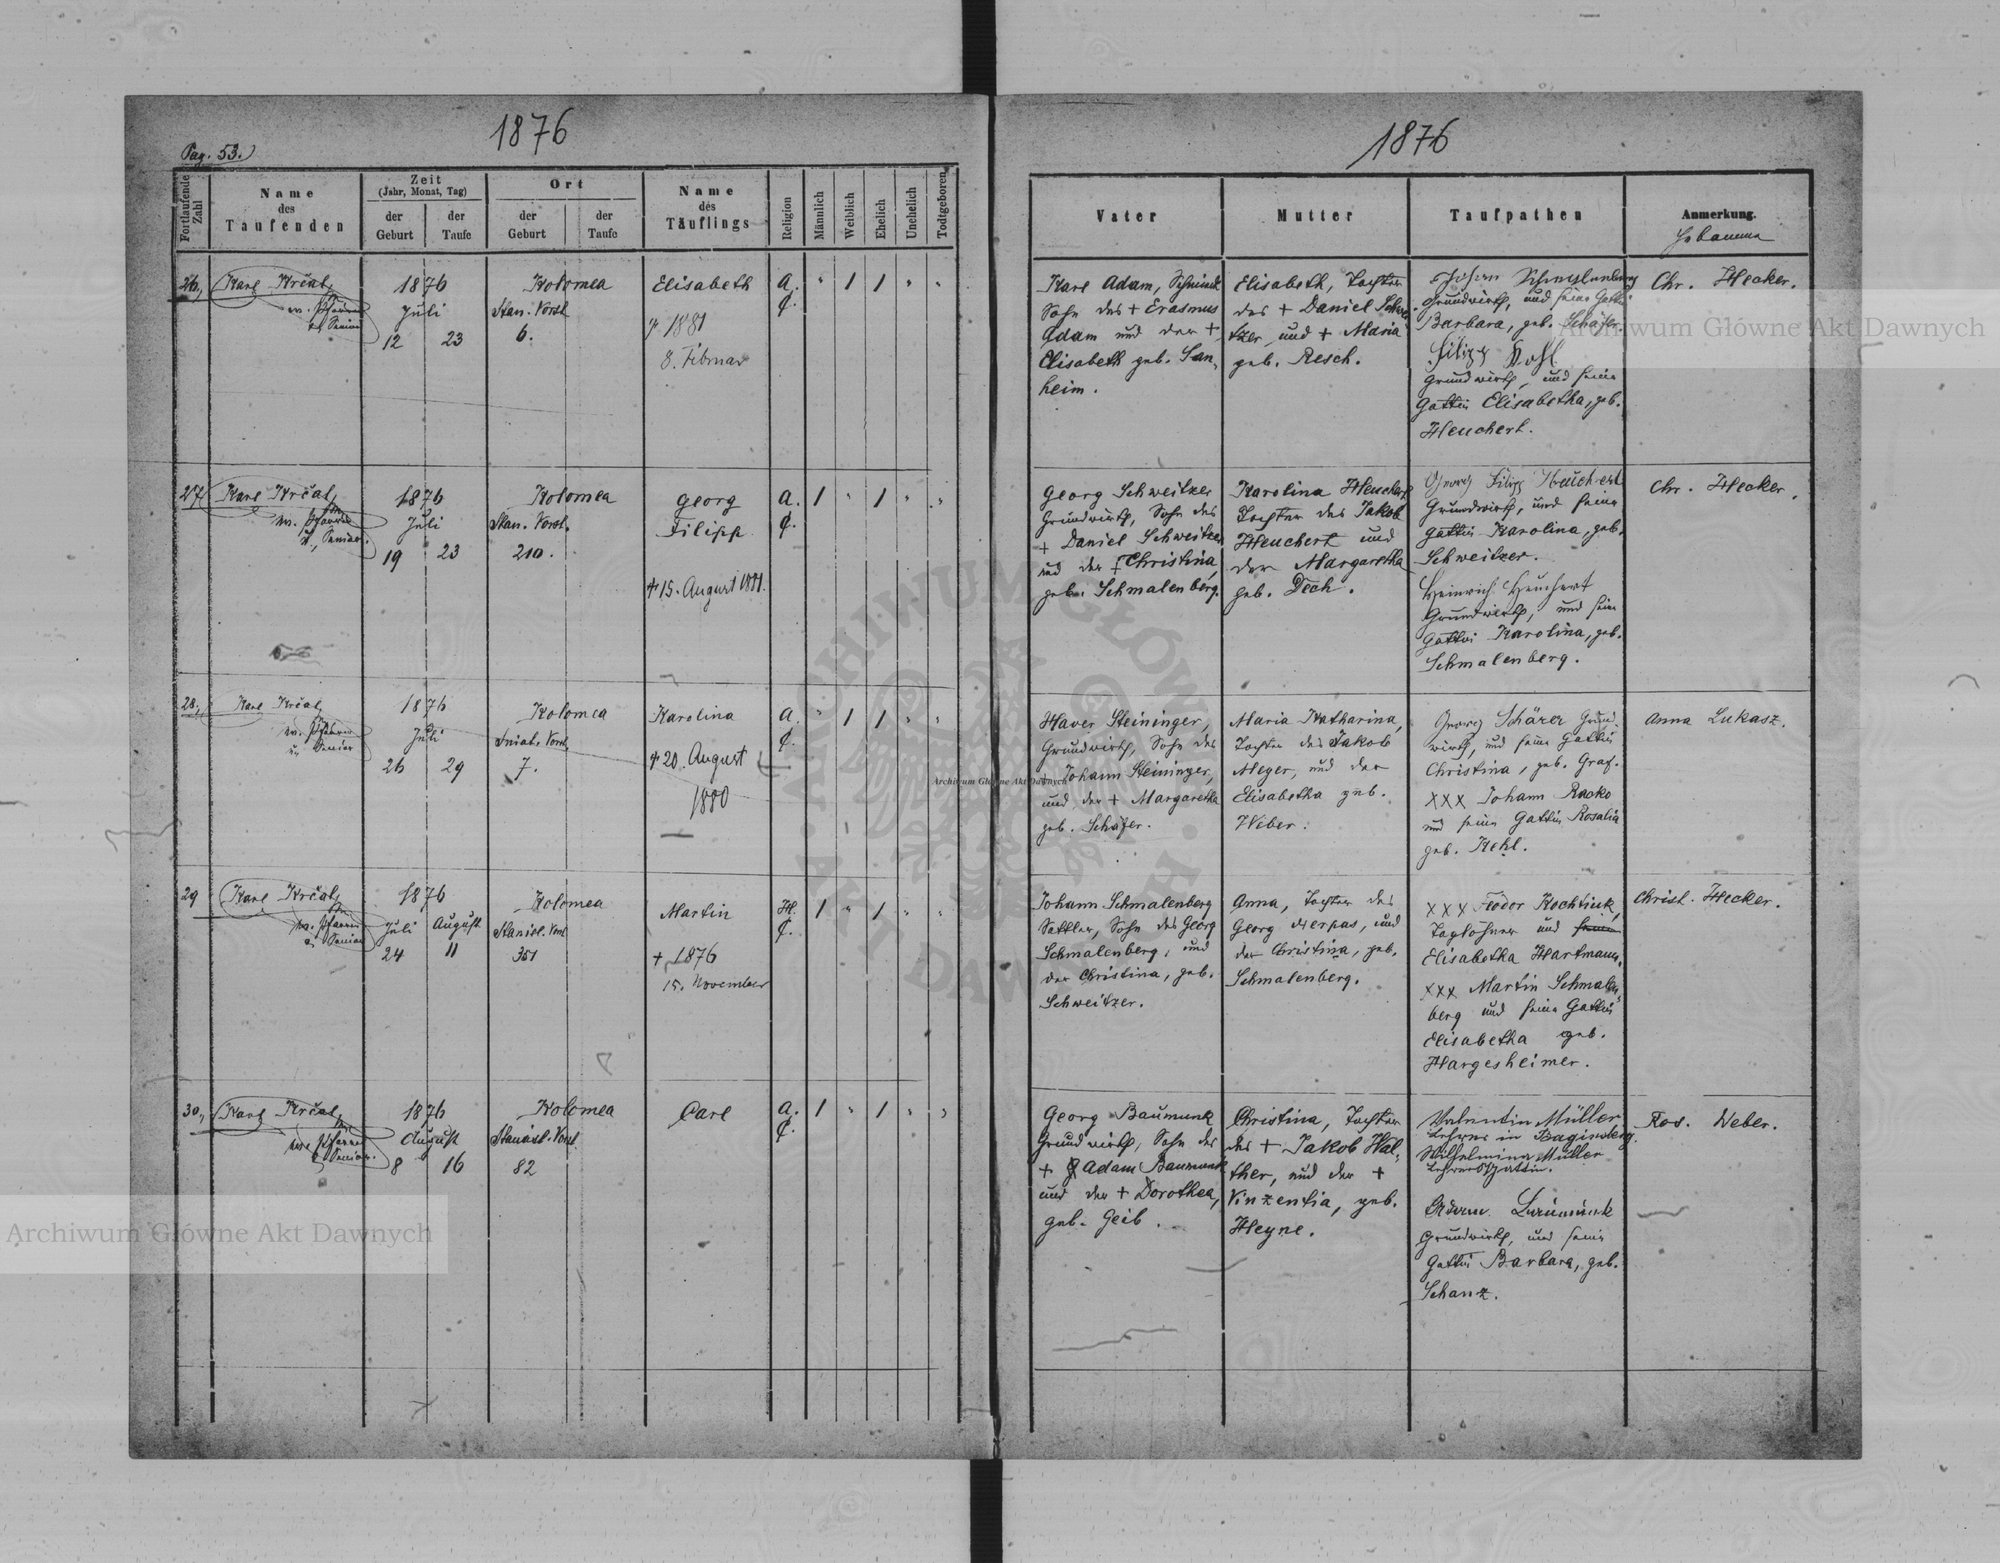 1876
Pag. 53.
Fortlaufende Zahl
Name
des
Taufenden
Zeit
(Jahr, Monat, Tag)
der
Geburt
der
Taufe
Ort
der
Geburt
der
Taufe
Name
des
Täuflings
Religion
Männlich
Weiblich
Ehelich
Unehelich
Todtgeboren
26.,
Karl Krčal,
ev. Pfarrer
u. Senior
1876
Juli
12 23
Kolomea
Stan. Vorst.
6.
Elisabeth
† 1881
8. Februar
A.
C.
" 1 1 " "
27
Karl Krčal,
ev. Pfarrer
u. Senior.
1876
Juli
19 23
Kolomea
Stan. Vorst.
210.
Georg
Filipp
† 15. August 1881.
A.
C.
1 " 1 " "
28.,
Karl Krčal,
ev. Pfarrer
u. Senior
1876
Juli
26 29
Kolomea
Sniat. Vorst.
7.
Karolina
† 20. August
1880
A.
C.
" 1 1 " "
29
Karl Krčal,
ev. Pfarrer
u. Senior
1876
Juli August
24 11
Kolomea
Stanisl. Vorst.
351
Martin
† 1876
15. November
H.
C.
1 " 1 " "
30.,
Karl Krčal,
ev. Pfarrer
u. Senior.
1876
August
8 16
Kolomea
Stanisl. Vorst.
82
Carl
A.
C.
1 " 1 " "
1876
Vater
Mutter
Taufpathen
Anmerkung.
Hebamme
Karl Adam, Schmied
Sohn des † Erasmus
Adam und der †
Elisabeth geb. San-
heim.
Elisabeth, Tochter
des † Daniel
und † Maria
geb. Resch.
Johann Schmalenberg
Grundwirth, und seine Gattin
Barbara, geb. Schäfer.
Filipp Kohl
Grundwirth, und seine
Gattin Elisabetha, geb.
Heuchert.
Chr. Hecker.
Georg Schweitzer
Grundwirth, Sohn des
† Daniel Schweitzer
und der † Christina,
geb. Schmalenberg.
Karolina Heuchert
Tochter des Jakob
Heuchert und
der Margaretha
geb. Dech.
Georg Filipp Heuchert
Grundwirth, und seine
Gattin Karolina, geb.
Schweitzer.
Heinrich Heuchert
Grundwirth, und seine
Gattin Karolina, geb.
Schmalenberg.
Chr. Hecker.
Xaver Steininger,
Grundwirth, Sohn des
† Johann Steininger,
und der † Margaretha
geb. Schäfer.
Maria Katharina,
Tochter des Jakob
Meyer, und der
Elisabetha geb.
Weber.
Georg Schärer Grund-
wirth, und seine Gattin
Christina, geb. Graf.
XXX Johann Racko
und seine Gattin Rosalia
geb. Kehl.
Anna Lukasz.
Johann Schmalenberg
Sattler, Sohn des Georg
Schmalenberg, und
der Christina, geb.
Schweitzer.
Anna, Tochter des
Georg Nerpas, und
der Christina, geb.
Schmalenberg.
XXX Fedor Kochtiuk,
Taglöhner und seine
Elisabetha Hartmann.
XXX Martin Schmalen-
berg und seine Gattin
Elisabetha geb.
Hargesheimer.
Christ. Hecker.
Georg Baumunk
Grundwirth, Sohn des
† Adam Baumunk
und der † Dorothea,
geb. Geib.
Christina, Tochter
des † Jakob Wal-
ther, und der †
Vinzentia, geb.
Heyne.
Valentin Müller
Lehrer in Baginsberg.
Wilhelmina Müller
Lehrersgattin.
Adam Baumunk
Grundwirth, und seine
Gattin Barbara, geb.
Schanz.
Ros. Weber.
Archiwum Główne Akt Dawnych
Archiwum Główne Akt Dawnych
Archiwum Główne Akt Dawnych
ARCHIWUM GŁÓWNE AKT DAWNYCH